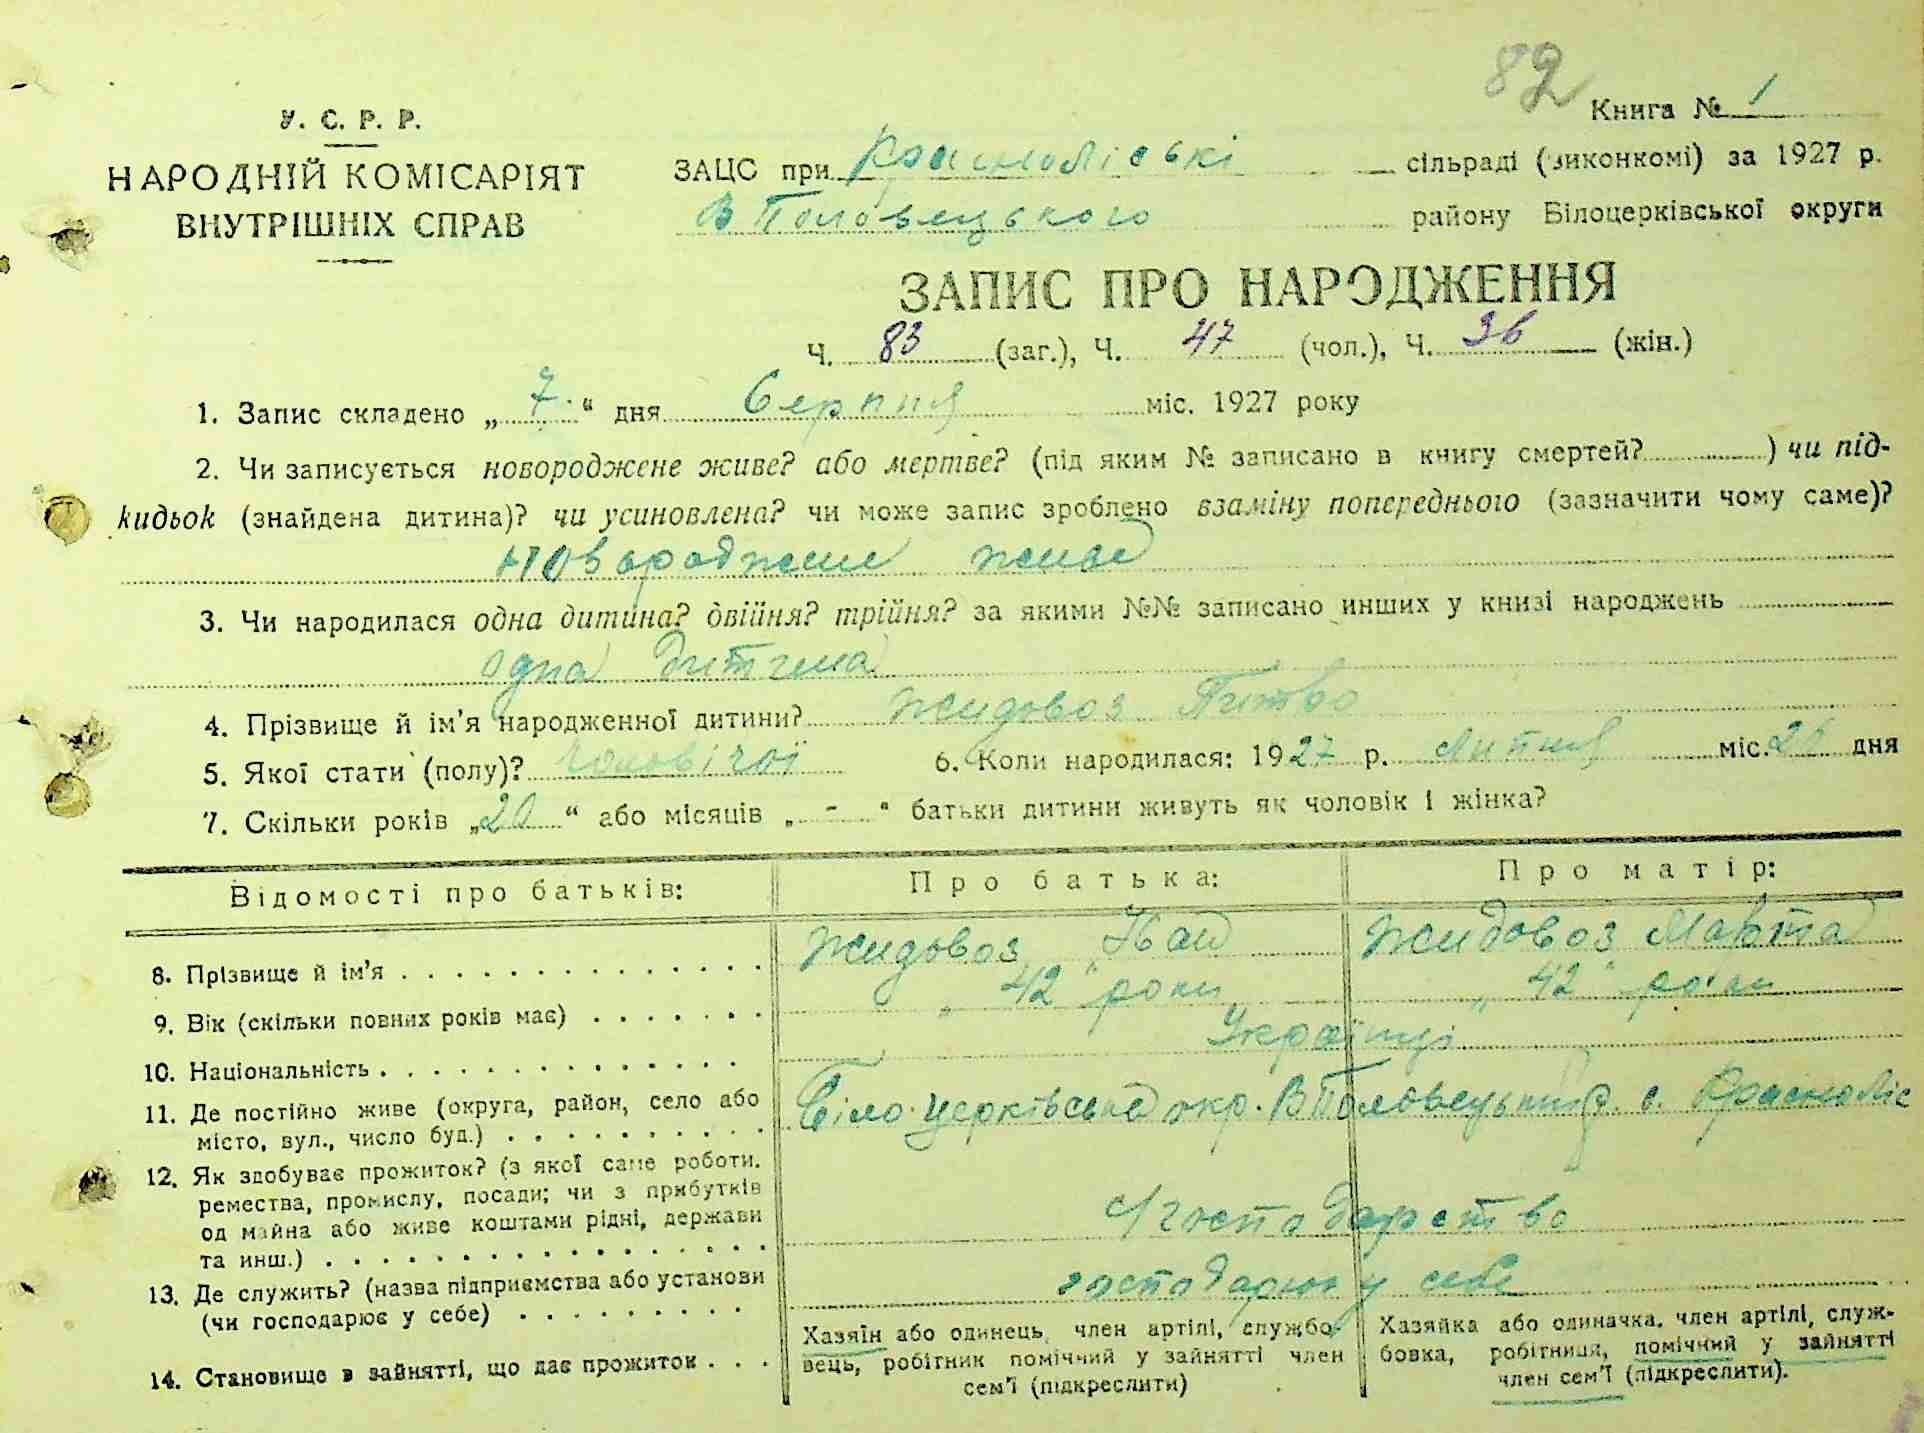 82
Книга № 1
У. С. Р. Р.
НАРОДНІЙ КОМІСАРІЯТ
ВНУТРІШНІХ СПРАВ
ЗАЦС при Красноліські сільраді (виконкомі) за 1927 р.
В Половецького району Білоцерківської округи
ЗАПИС ПРО НАРОДЖЕННЯ
Ч. 83 (заг.), Ч. 47 (чол.), Ч. 36 (жін.)
1. Запис складено „ 7 “ дня Серпня міс. 1927 року
2. Чи записується новороджене живе? або мертве? (під яким № записано в книгу смертей? ) чи під-
кидьок (знайдена дитина)? чи усиновлена? чи може запис зроблено взаміну попереднього (зазначити чому саме)?
Новороджене живе
3. Чи народилася одна дитина? двійня? трійня? за якими №№ записано инших у книзі народжень
одна дитина
4. Прізвище й ім’я народженної дитини? Жидовоз
5. Якої стати (полу)? чоловічої 6. Коли народилася: 1927 р. Липня міс. дня
7. Скільки років „20“ або місяців „ - “ батьки дитини живуть як чоловік і жінка?
Відомості про батьків: Про батька: Про матір:
8. Прізвище й ім’я Жидовоз Іван Жидовоз Марта
9. Вік (скільки повних років має) „ 42 “ роки „ 42 “ роки
10. Національність Українці
11. Де постійно живе (округа, район, село або
місто, вул., число буд.) Білоцерківська окр. В Половецький р. с. Красноліс
12. Як здобуває прожиток? (з якої саме роботи,
ремества, промислу, посади; чи з прибутків
од майна або живе коштами рідні, держави
та инш.) С/господарство
13. Де служить? (назва підприємства або установи
(чи господарює у себе) господарює у себе
14. Становище в зайнятті, що дає прожиток
Хазяїн або одинець, член артілі, службо-
вець, робітник помічний у зайнятті член
сем’ї (підкреслити)
Хазяйка або одиначка, член артілі, служ-
бовка, робітниця, помічний у зайнятті
член сем’ї (підкреслити).